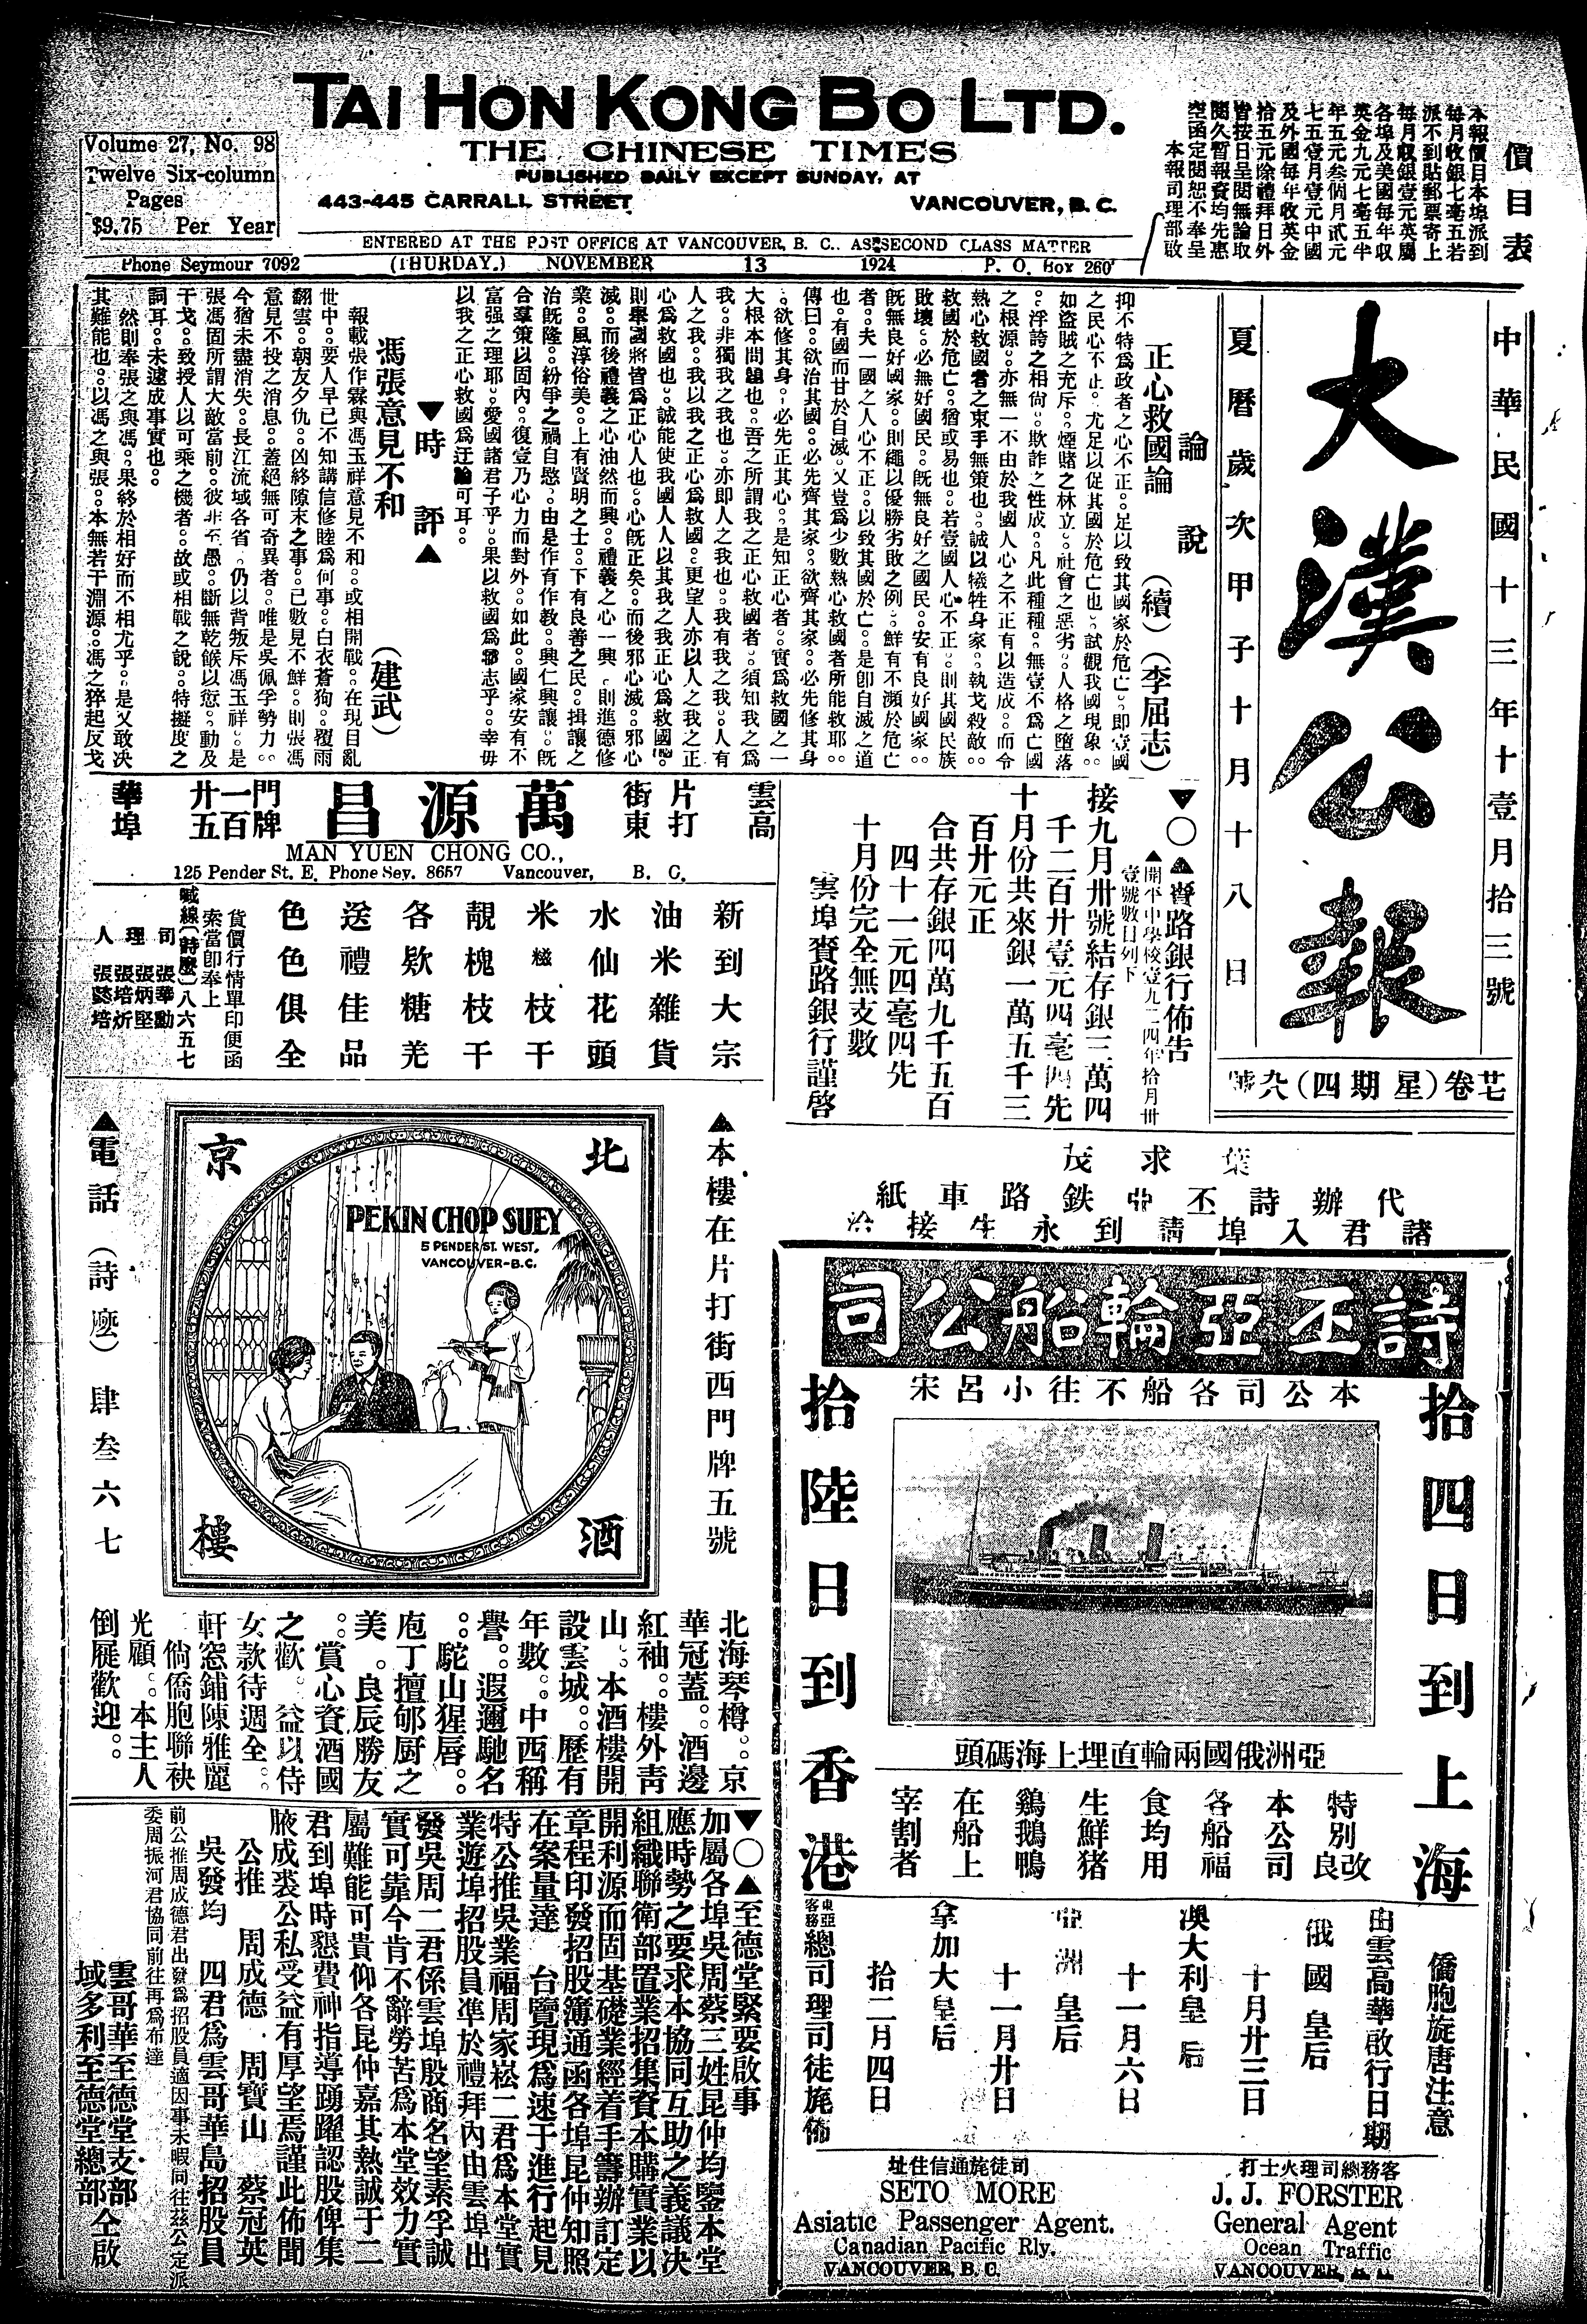 TAI HON KONG BO LTD.
THE CHINESE TIMES
PUBLISHED DAILY EXCEPT SUNDAY, AT
443-445 CARRALL STREET VANCOUVER, B. C.
Volume 27, No. 98
Twelve Six-column
Pages
$9.75 Per Year
ENTERED AT THE POST OFFICE AT VANCOUVER, B. C., AS SECOND CLASS MATTER
Phone Seymour 7092 (THURDAY.) NOVEMBER 13 1924 P. O. Box 260
價目表
本報價目本埠派到
每月收銀七毫五若
派不到貼郵票寄上
每月取銀壹元英屬
各埠及美國每年收
英金九元七毫五半
年五元叁個月貳元
七五壹月壹元中國
及外國每年收英金
拾五元除禮拜日外
皆按日呈閱無論取
閱久暫報費均先惠
空函定閱恕不奉呈
本報司理部啟
中華民國十三年十壹月拾三號
大漢公報
夏曆歲次甲子十月十八日
廿七卷(星期四)九八號
論說
正心救國論 (續) (李屈志)
抑不特爲政者之心不正。足以致其國家於危亡。即壹國
之民心不止。尤足以促其國於危亡也。試觀我國現象。
如盜賊之充斥。煙賭之林立。社會之惡劣。人格之墮落
。浮誇之相尙。欺詐之性成。凡此種種。無壹不爲亡國
之根源。亦無一不由於我國人心之不正有以造成。而今
熱心救國者之束手無策也。誠以犧牲身家。執戈殺敵。
救國於危亡。猶或易也。若壹國人心不正。則其國民族
敗壞。必無好國民。旣無良好之國民。安有良好國家。
旣無良好國家。則繩以優勝劣敗之例。鮮有不瀕於危亡
者。夫一國之人心不正。以致其國於亡。是卽自滅之道
也。有國而甘於自滅。又豈爲少數熱心救國者所能救耶。
傳曰。欲治其國。必先齊其家。欲齊其家。必先修其身
。欲修其身。必先正其心。是知正心者。實爲救國之一
大根本問題也。吾之所謂我之正心救國者。須知我之爲
我。非獨我之我也。亦即人之我也。我有我之我。人有
人之我。我以我之正心爲救國。更望人亦以人之我之正
心爲救國也。誠能使我國人人以其我之我正心爲救國。
則舉國將皆爲正心人也。心旣正矣。而後邪心滅。邪心
滅。而後禮義之心油然而興。禮義之心一興。則進德修
業。風淳俗美。上有賢明之士。下有良善之民。揖讓之
治旣隆。紛爭之禍自慜。由是作有作教。興仁興讓。旣
合羣策以固內。復壹乃心力而對外。如此。國家安有不
富强之理耶。愛國諸君子乎。果以救國爲志乎。幸毋
以我之正心救國爲迂論可耳。
▼時評▲
馮張意見不和 (建武)
報載張作霖與馮玉祥意見不和。或相開戰。在現目亂
世中。要人早已不知講信修睦爲何事。白衣蒼狗。覆雨
翻雲。朝友夕仇。凶終隙末之事。已數見不鮮。則張馮
意見不投之消息。蓋絕無可奇異者。唯是吳佩孚勢力。
今猶未盡消失。長江流域各省。仍以背叛斥馮玉祥。是
張馮固所謂大敵當前。彼非至愚。斷無乾餱以愆。動及
干戈。致授人以可乘之機者。故或相戰之說。特擬度之
詞耳。未遽成事實也。
然則奉張之與馮。果終於相好而不相尤乎。是又敢决
其難能也。以馮之與張。本無若干淵源。馮之猝起反戈
▼○▲賚路銀行佈告
▲開平中學校壹九二四年拾月卅
壹號數目列下
接九月卅號結存銀三萬四
千二百廿壹元四毫四先
十月份共來銀一萬五千三
百廿元正
合共存銀四萬九千五百
四十一元四毫四先
十月份完全無支數
雲埠賚路銀行謹啓
雲高
片打
街東
萬源昌
門牌
一百
廿五
華埠
MAN YUEN CHONG CO.,
125 Pender St. E. Phone Sey. 8657 Vancouver, B. C.
新到大宗
油米雜貨
水仙花頭
米糍枝干
靚槐枝干
各欵糖羌
送禮佳品
色色俱全
貨價行情單印便函
索當卽奉上
喊線(詩麼)八六五七
司理人
張華勳
張炳堅
張培炘
張懿培
▲本樓在片打街西門牌五號
北京酒樓
PEKIN CHOP SUEY
5 PENDER ST. WEST,
VANCOUVER-B.C.
▲電話(詩麼)肆叁六七
北海琴樽。京
華冠蓋。酒邊
紅袖。樓外靑
山。本酒樓開
設雲城。歷有
年數。中西稱
譽。遐邇馳名
。駝山猩唇。
庖丁擅郇厨之
美。良辰勝友
。賞心資酒國
之歡。益以侍
女款待週全。
軒窓鋪陳雅麗
倘僑胞聯袂
光顧。本主人
倒屣歡迎。
葉求茂
代辦詩丕亞鉄路車紙
諸君入埠請到永生接洽
詩丕亞輪船公司
本公司各船不往小呂宋
拾四日到上海
拾陸日到香港
亞洲俄國兩輪直埋上海碼頭
特別改良
本公司
各船福
食均用
生鮮猪
鷄鵝鴨
在船上
宰割者
僑胞旋唐注意
由雲高華啟行日期
俄國皇后
十月廿三日
澳大利皇后
十一月六日
亞洲皇后
十一月廿日
拿加大皇后
拾二月四日
東亞客務總司理司徒旄佈
司徒旄通信住址
SETO MORE
Asiatic Passenger Agent.
Canadian Pacific Rly.
VANCOUVER, B. C.
客務總司理火士打
J. J. FORSTER
General Agent
Ocean Traffic
VANCOUVER,
▼○▲至德堂緊要啟事
加屬各埠吳周蔡三姓昆仲均鑒本堂
應時勢之要求本協同互助之義議决
組織聯衛部置業招集資本購實業以
開利源而固基礎業經着手籌辦訂定
章程印發招股簿通函各埠昆仲知照
在案量達 台覽現爲速于進行起見
特公推吳業福周家崧二君爲本堂實
業遊埠招股員凖於禮拜內由雲埠出
發吳周二君係雲埠殷商名望素孚誠
實可靠今肯不辭勞苦爲本堂效力實
屬難能可貴仰各昆仲嘉其熱誠于二
君到埠時懇費神指導踴躍認股俾集
腋成裘公私受益有厚望焉謹此佈聞
公推 周成德 周寶山 蔡冠英
吳發均 四君爲雲哥華島招股員
前公推周成德君出發爲招股員適因事未暇同往茲公定派
委周振河君協同前往再爲布達
雲哥華至德堂支部
域多利至德堂總部 仝啟